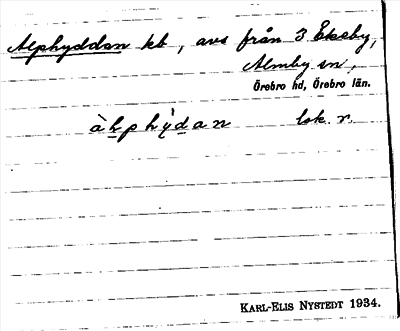 Alphyddan kb, avs från 3 Ekeby,
Almby sn,
Örebro hd, Örebro län.
àh̲phẏd̲an lok. r.
KARL-ELIS NYSTEDT 1934.